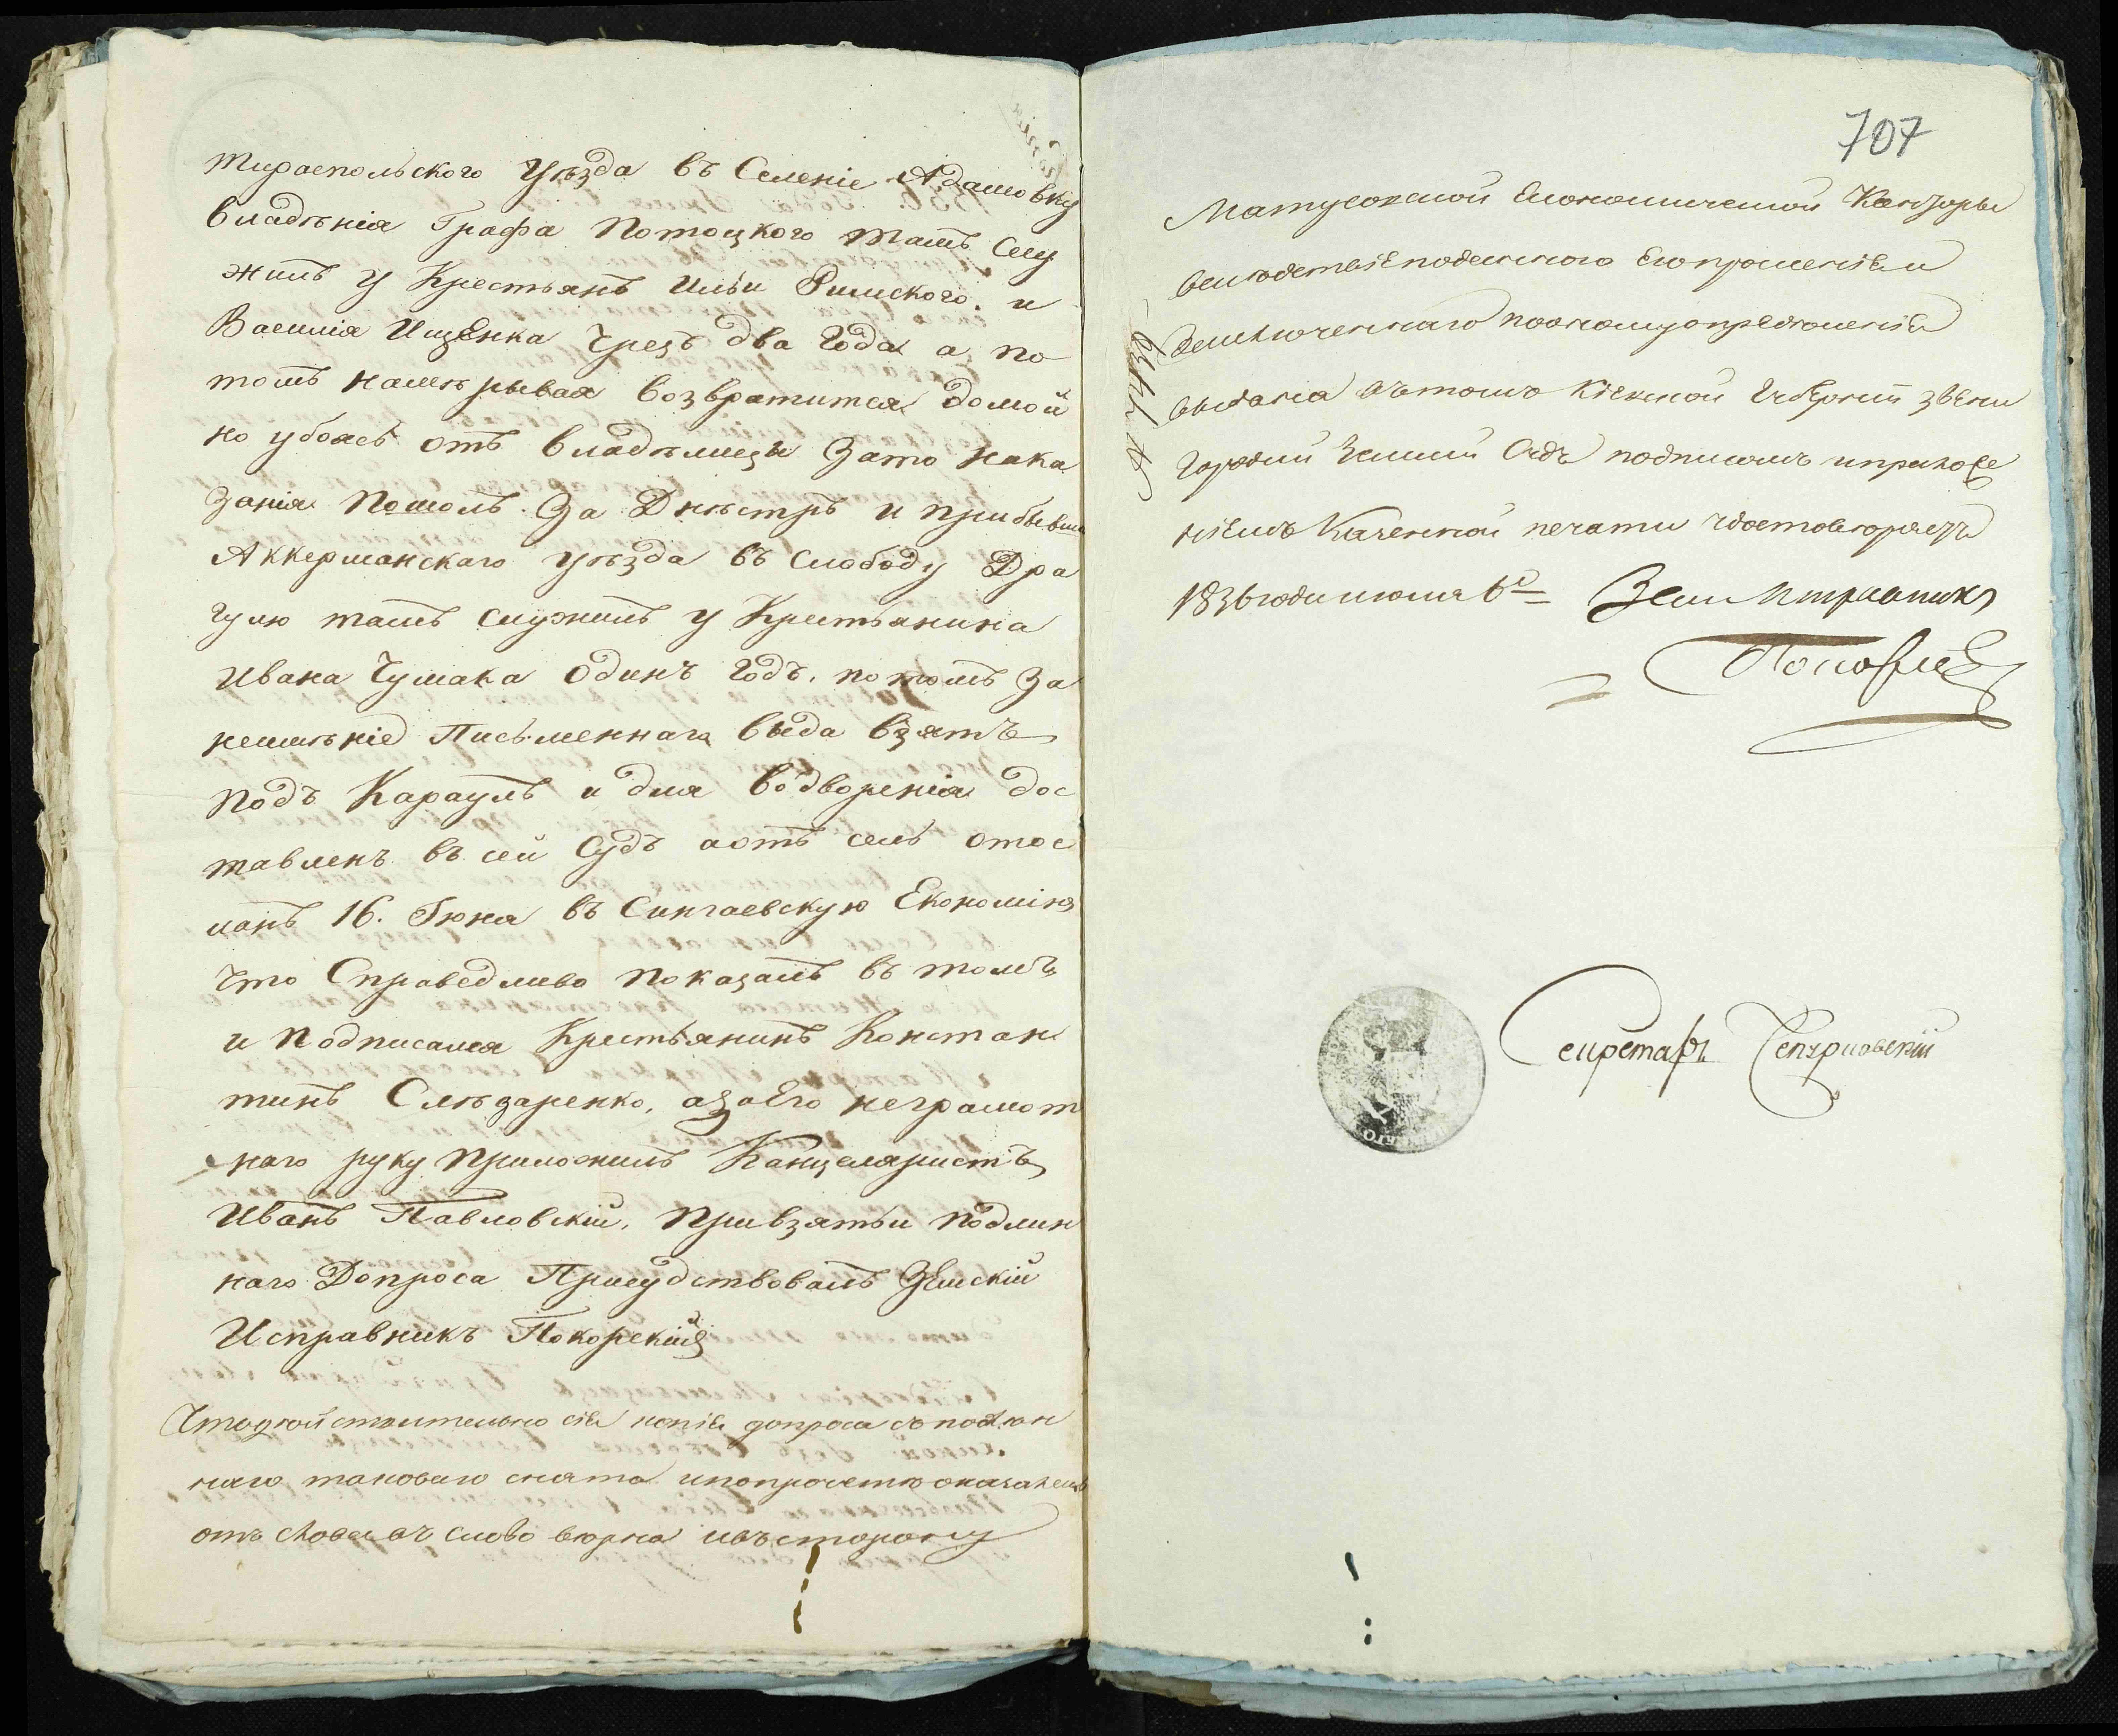 Тираспольского Уѣзда въ Селеніе Адамовку
владѣнія Графа Потоцкого тамъ слу
жилъ у Крестьянъ Ильи Римского. и
Василія Ищенка Чрезъ два Года а по
томъ намѣрывая возвратится домой
но убоясь отъ владѣлицы Зато нака
занія Пошолъ За Днѣстръ и прибывши
Аккерманскаго уѣзда въ Слободу Дра
гулю тамъ служилъ у Крестьянина
Ивана Чумака Одинъ Годъ, потомъ За
неимѣніе Письменнага выда взятъ
подъ Караулъ и для водворенія дос
тавленъ въ сей Судъ аотъ сель отос
ланъ 16. Іюня въ Сингаевскую Економію
Что Справедливо показалъ въ томъ
и Подписался Крестьянинъ Констан
тинъ Слѣзаренко, азаЕго неграмот
наго руку приложилъ Канцеляристъ
Иванъ Павловскій, Привзятьи подлин
наго Допроса Присудствовалъ Земскій
Исправникъ Покорскій
Чтодѣйствительно сія копія допроса съподлин
наго таковаго снята ипопрочетѣ оказалась
отъ слова въ слово вѣрна ивъсторону
707
Матусовской Економической Канторы
вслѣдствіеподаннаго Еюпрошенія и
заключеннаго посемуопредѣленія
выдана вътомъ Кіевской Губерніи Звени
городскій Земскій Судъ подписомъ иприложе
ніемъ Казенной печати удостовѣряетъ
1836года июля 6го Зем Исправник
Секретарь Чепурковскій